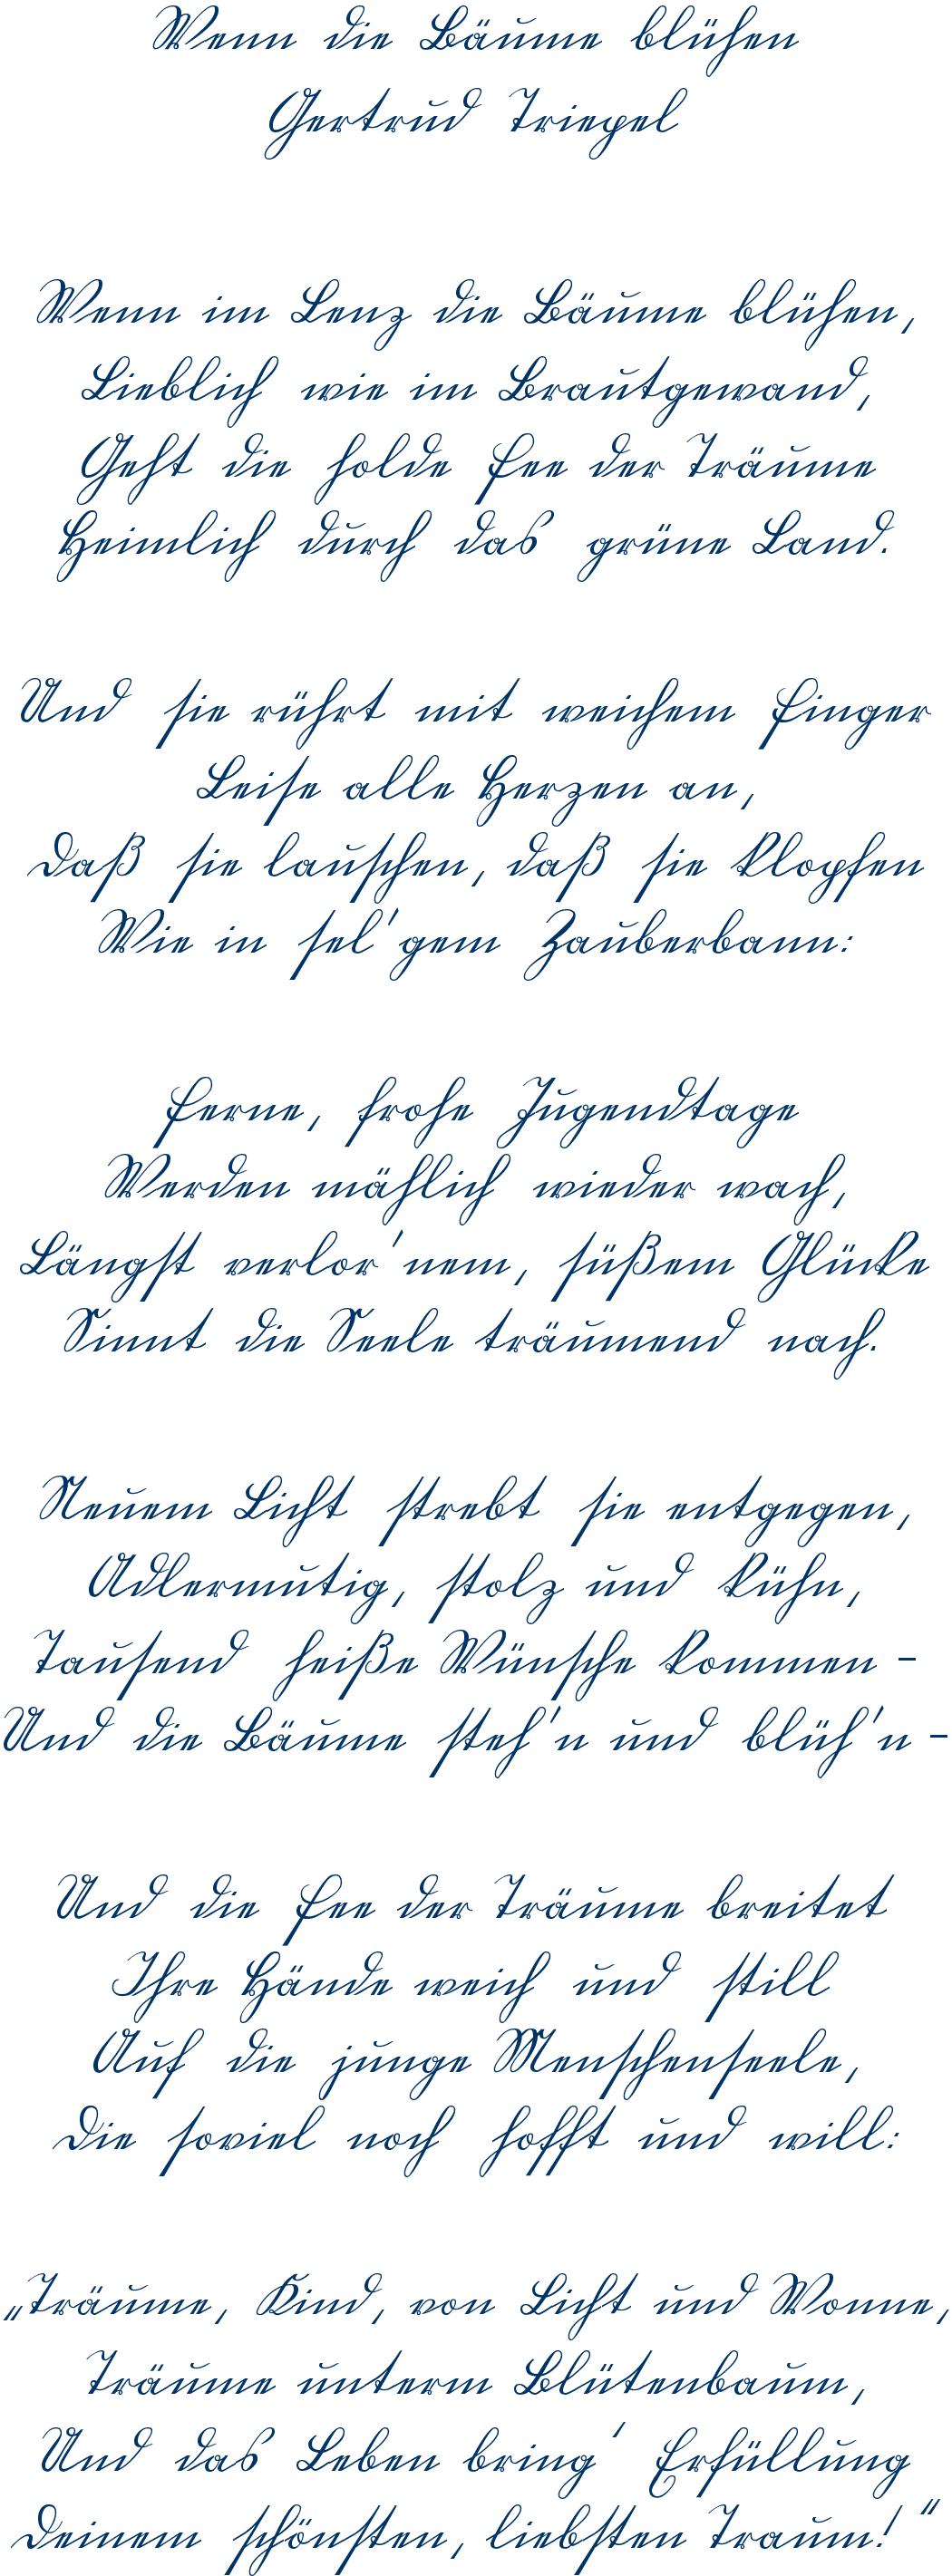 Wenn die Bäume blühen
Gertrud Triepel
Wenn im Lenz die Bäume blühen,
Lieblich wie im Brautgewand,
Geht die holde Fee der Träume
Heimlich durch das grüne Land.
Und sie rührt mit weichem Finger
Leise alle Herzen an,
Daß sie lauschen, daß sie klopfen
Wie in sel'gem Zauberbann:
Ferne, frohe Jugendtage
Werden mählich wieder wach,
Längst verlor'nem, süßem Glücke
Sinnt die Seele träumend nach.
Neuem Licht strebt sie entgegen,
Adlermutig, stolz und kühn,
Tausend heiße Wünsche kommen -
Und die Bäume steh'n und blüh'n -
Und die Fee der Träume breitet
Ihre Hände weich und still
Auf die junge Menschenseele,
Die soviel noch hofft und will:
„Träume, Kind, von Licht und Wonne,
Träume unterm Blütenbaum,
Und das Leben bring' Erfüllung
Deinem schönsten, liebsten Traum!"